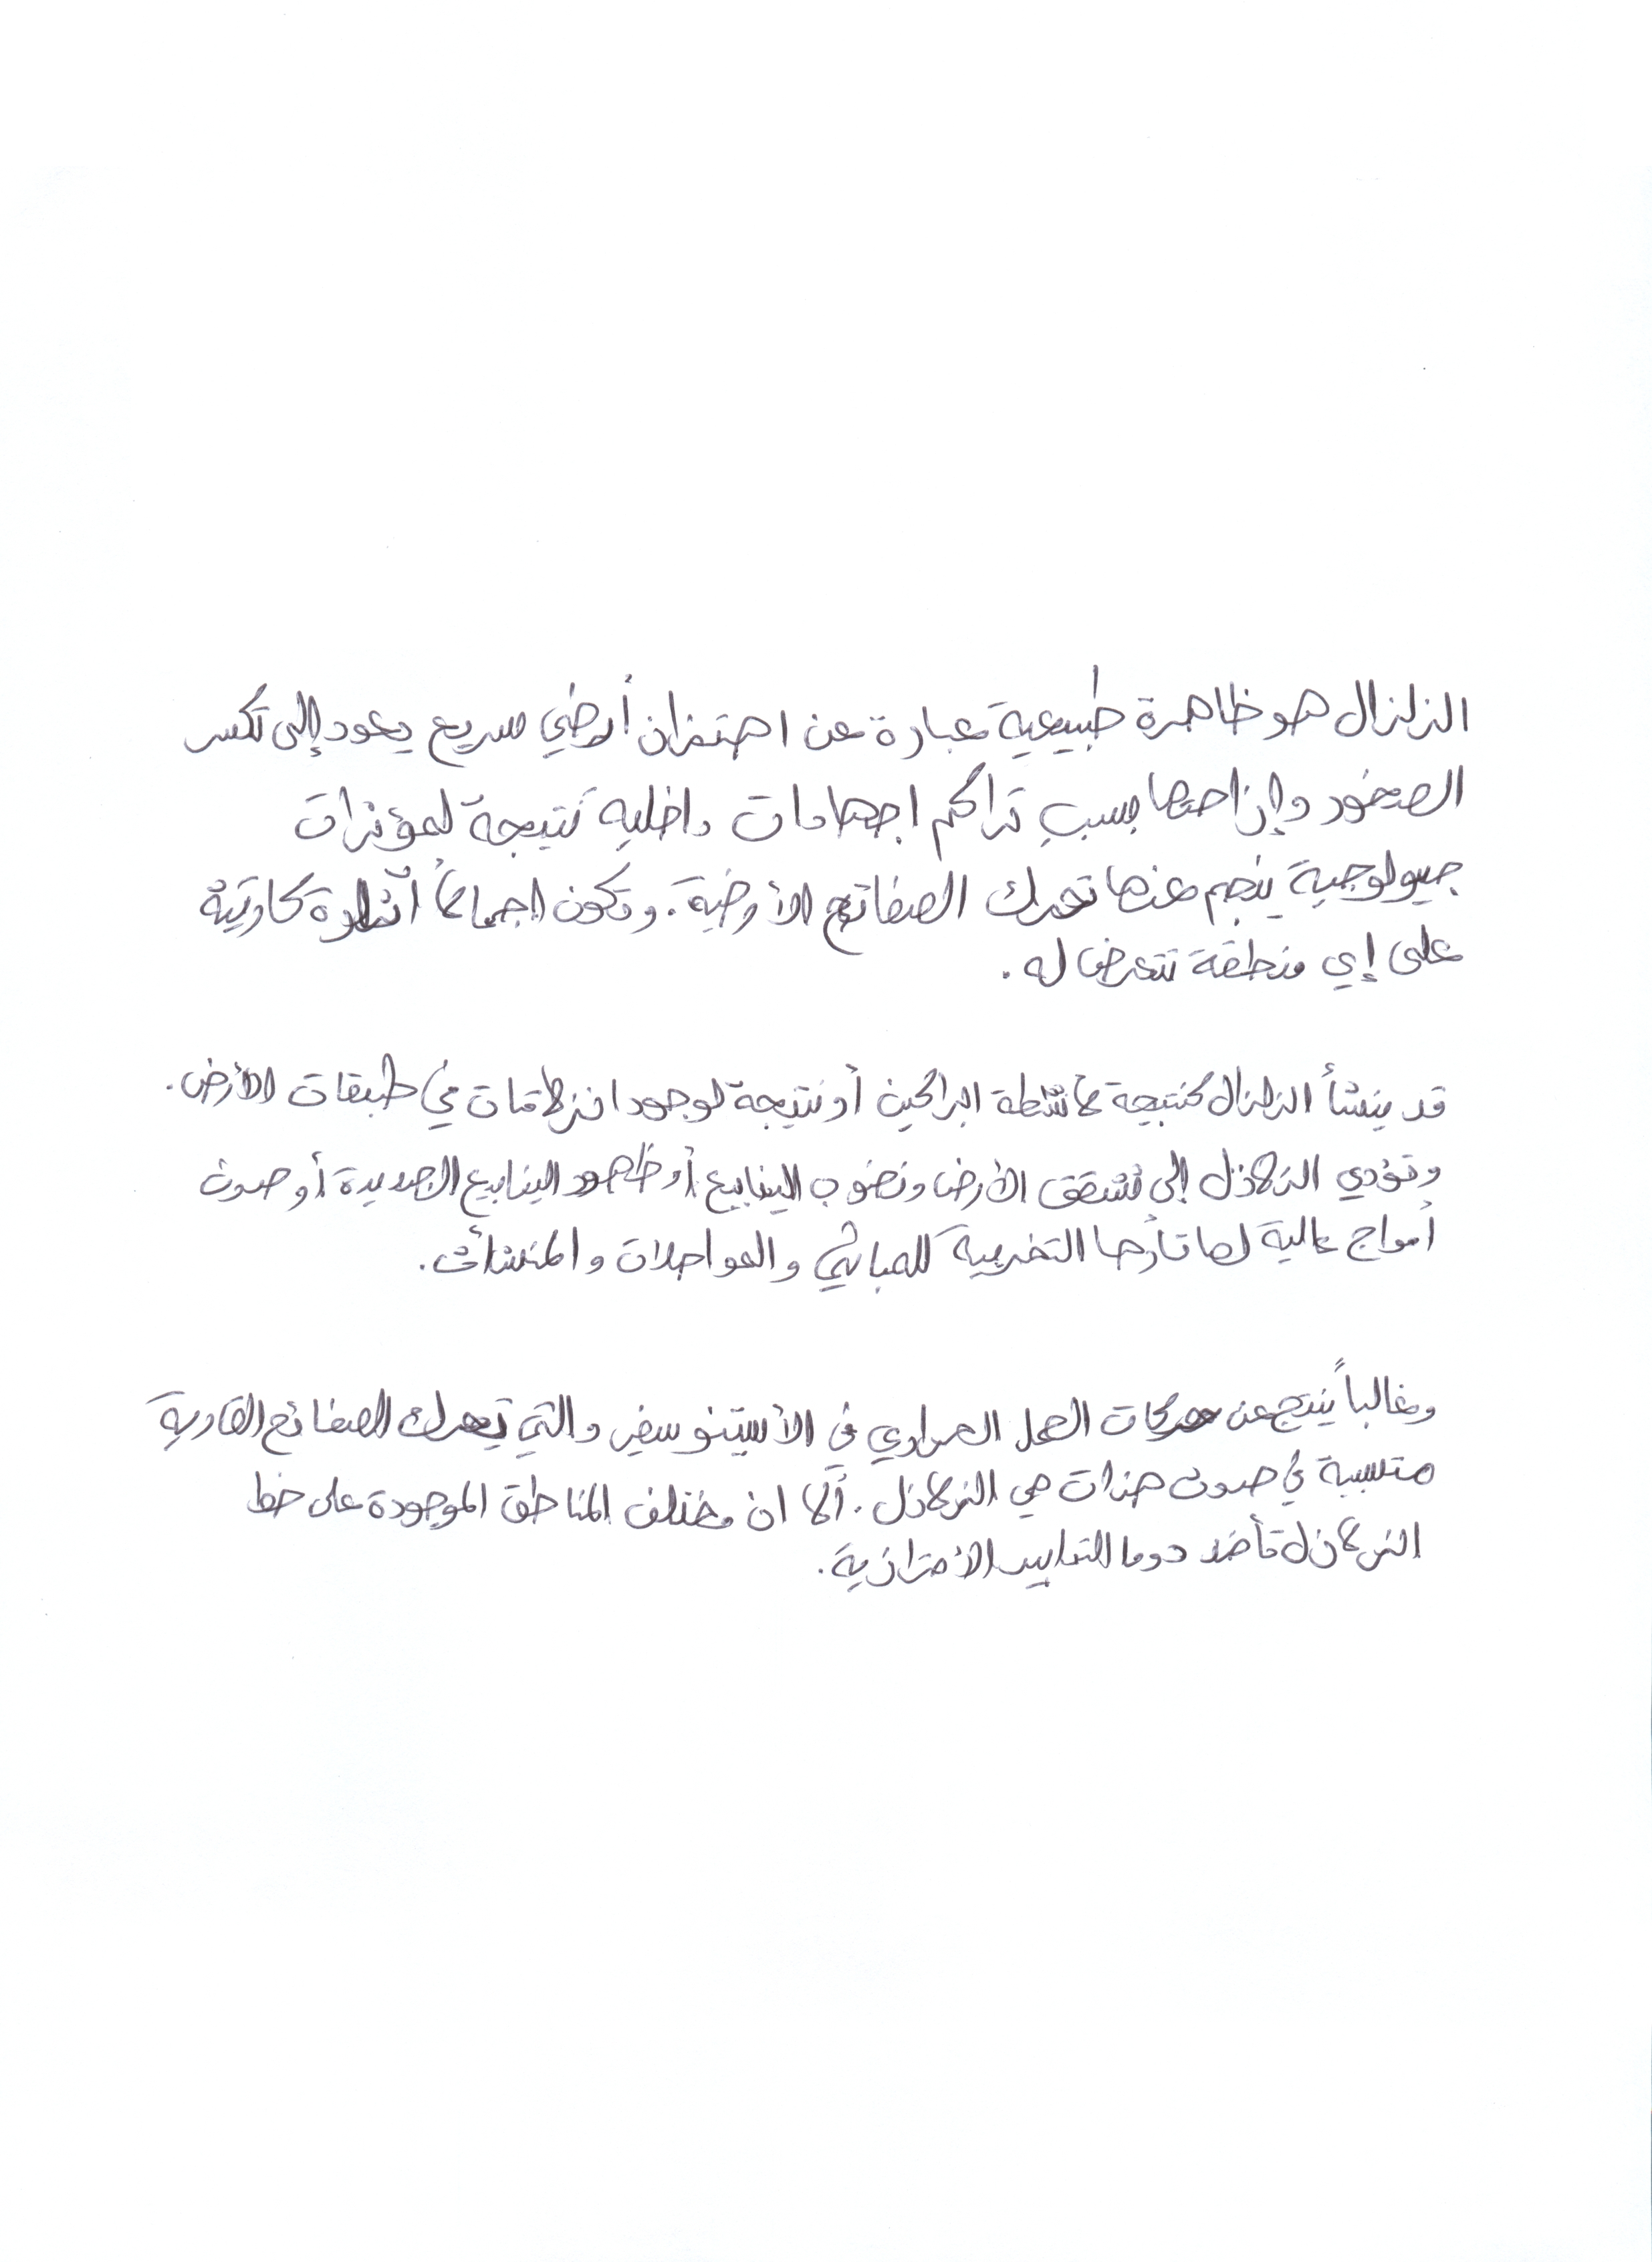 الزلزال هو ظاهرة طبيعية عبارة عن اهتزاز أرضي سريع يعود إلى تكسر
الصخور وإزاحتها بسبب تراكم اجهادات داخلية نتيجة لمؤثرات
جيولوجية ينجم عنها تحرك الصفائح الأرضية. وتكون اجمالاً اثارة كارثية
على إي منطقة تتعرض له.
قد ينشأ الزلزال كنتيجة لأنشطة البراكين أو نتيجة لوجود انزلاقات في طبقات الأرض.
وتؤدي الزلازل إلى تشقق الأرض ونضوب الينابيع أو ظهور الينابيع الجديدة أو حدوث
أمواج عالية لها التخريبية للمباني والمواصلات والمنشأت.
وغالباً ينتج عن حركات الحمل الحراري في الأسينوسفير والتي تحرك الصفائح القارية
متسببة في حدوث هزات هي الزلازل. ألا ان مختلف المناطق الموجودة على خط
الزلازل تأخذ دوما التدابير الأحترازية.